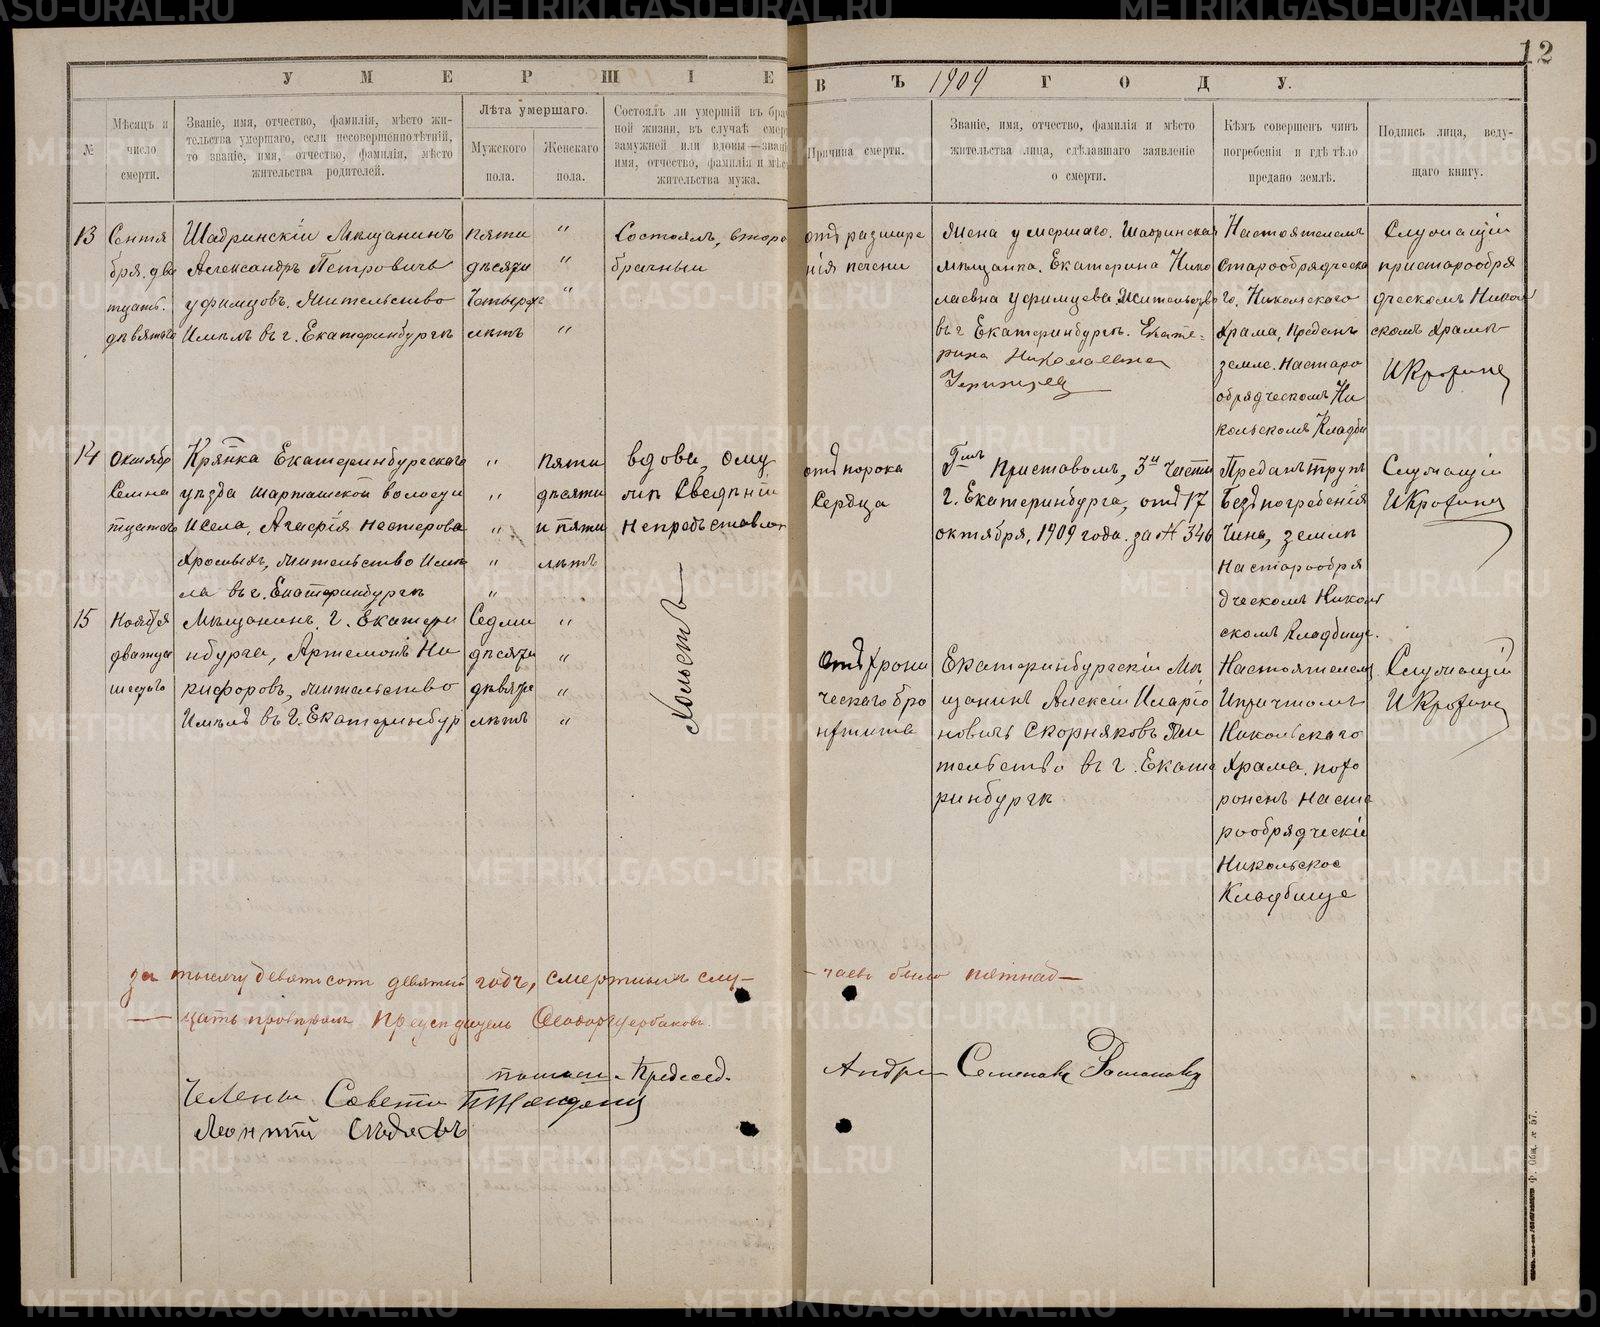 12
УМЕРШІЕ ВЪ 1909 ГОДУ.
№
Мѣсяцъ и
число
смерти.
Званіе, имя, отчество, фамилія, мѣсто жи-
тельства умершаго, если несовершеннолѣтній,
то званіе, имя, отчество, фамилія, мѣсто
жительства родителей.
Лѣта умершаго.
Мужского
пола.
Женскаго
пола.
Состоялъ ли умершій въ брач
ной жизни, въ случаѣ смер
замужней или вдовы—званіе
имя, отчество, фамилія и мѣс
жительства мужа.
Причина смерти.
Званіе, имя, отчество, фамилія и мѣсто
жительства лица, сдѣлавшаго заявленіе
о смерти.
Кѣмъ совершенъ чинъ
погребенія и гдѣ тѣло
предано землѣ.
Подпись лица, веду-
щаго книгу.
13
Сентя
бря. два
тцать.
девятаго
Шадринскій Мѣщанинъ
Александръ Петровичъ
Уфимцовъ. Жительство
Имѣлъ въ г. Екатеринбургѣ
пяти
десяти
Четырехъ
лѣтъ
Состоялъ, второ
брачный
отъ разшире
нія печени
Жена умершаго. Шадринская
мѣщанка. Екатерина Нико
лаевна Уфимцева Жительство
въ г Екатеринбургѣ. Екате-
рина Николаевна
Настоятелемъ
Старообрядческа
го, Никольскаго
Храма, Преданъ
землѣ. Настаро
обрядческомъ Ни
кольскомъ Кладби
Служащій
пристарообря
дческомъ Николь
скомъ Храмѣ
14
Октябр
Семна
тцатаго
Крянка Екатеринбургскаго
уѣзда Шарташской волости
Исела, Агафія Нестерова
Хромыхъ, жительство Имѣ
ла въ г. Екатеринбургѣ
пяти
десяти
и пяти
лѣтъ
вдова, ому
жѣ Сведѣній
Непредъставлен
отъ порока
Сердца
Г-мъ Приставомъ, 3й Части
г. Екатеринбурга, отъ 17
октября, 1909 года. за № 346
Преданъ трупъ
Безъ погребенія
Чина, землѣ
Настарообря
дческомъ Николь
скомъ Кладбище.
Служащій
15
Ноября
дватца
шестаго
Мѣщанинъ, г. Екатери
нбурга, Артемонъ Ни
кифоровъ, жительство
Имѣлъ въ г. Екатеринбур
Седми
десяти
девяти
лѣтъ
Холостъ
Отъ Хрони
ческаго бро
нхтита
Екатеринбургскій Мѣ
щанинъ Алексій Иларіо
новичъ Скорняковъ Жи
тельство въ г. Екате
ринбургѣ
Настоятелемъ
Ипричтомъ
Никольскаго
Храма. похо
роненъ Наста
рообрядческіе
Никольское
Кладбище
Служащій
за тысячу девятсотъ девятый годъ, смертныхъ слу-
-чаевъ было пятнад-
-цать Предсѣдатель
Андрей Семеновъ
Члены Совета
Леонтій